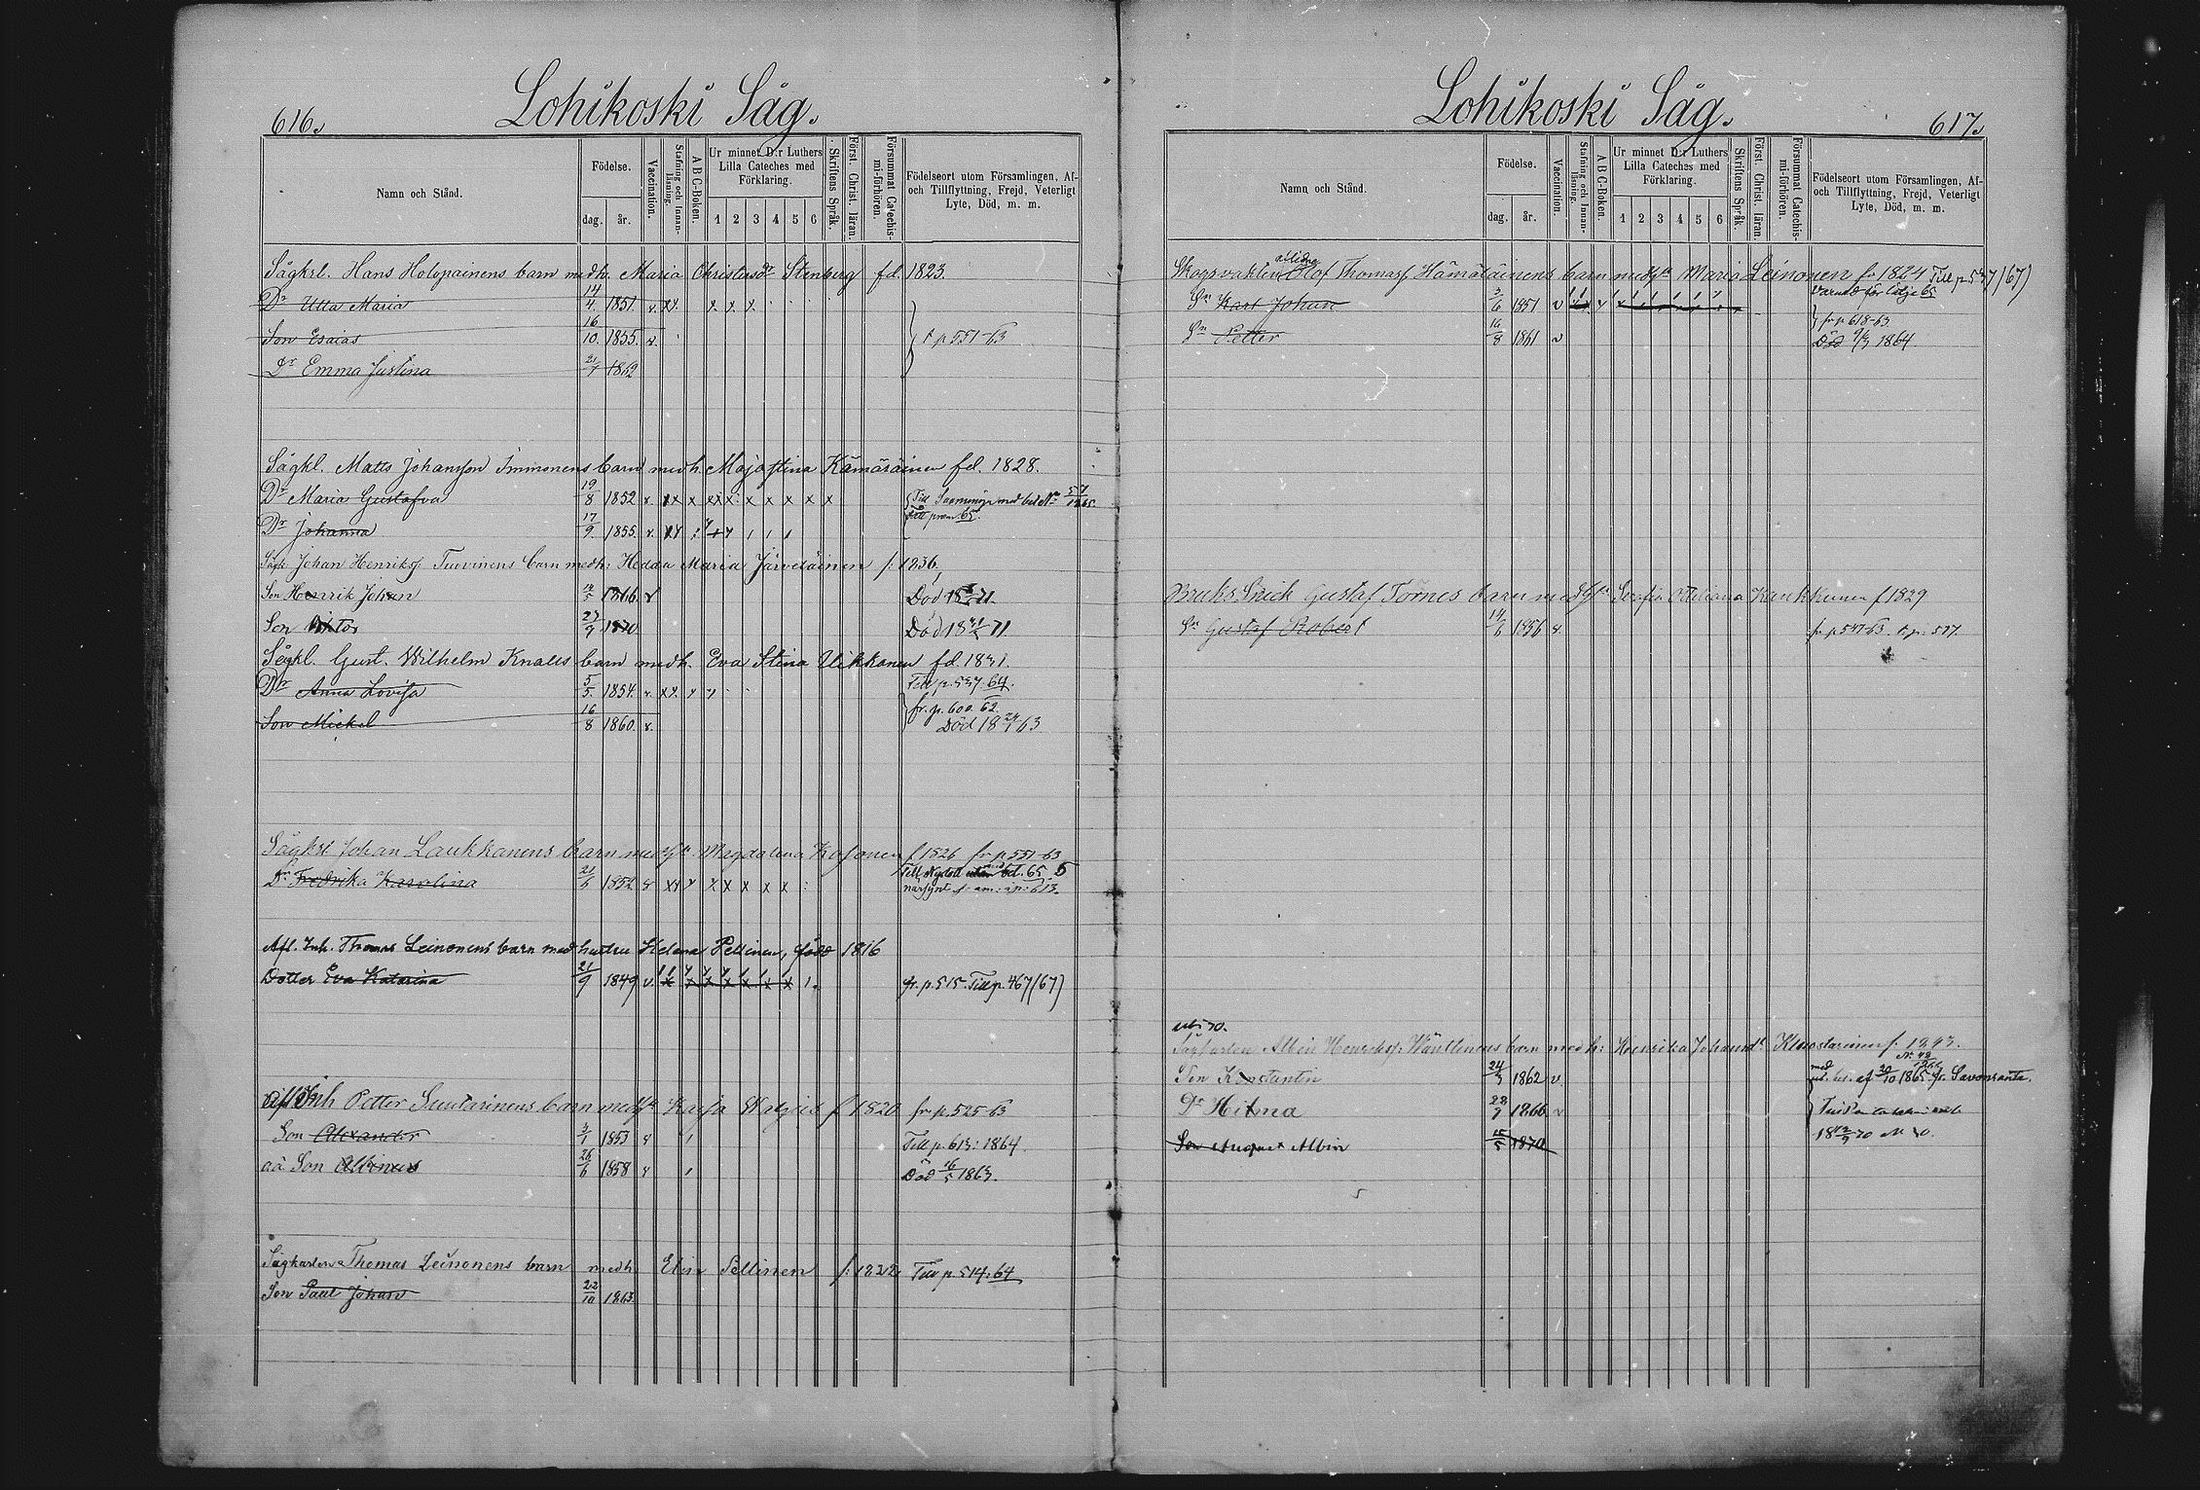 616.
Lohikoski Såg.
Namn och Stånd.
Födelse.
dag.
år.
Vaccination.
Stafning och Innanläsning.
A B C-Boken.
Ur minnet D:r Luthers Lilla Cateches med Förklaring.
1 2 3 4 5 6
Skriftens Språk.
Först. Christ. läran.
Försummat Catechismi-förhören.
Födelseort utom Församlingen, Af- och Tillflyttning, Frejd, Veterligt Lyte, Död, m. m.
Sågkrl. Hans Holopainens barn medh. Maria Christersdr Stenberg fd. 1823.
Dr Ulla Maria 14/4 1851. v. x x x x x
Son Esaias 16/10. 1855. v. t p 551-63
Dr Emma Justina 21/7 1862
Sågkl. Matts Johansson Immonens barn medh. Maja Stina Kämäräinen fd. 1828.
Dr Maria Gustafva 19/8 1852 v. x x x x x x x x x x Till Säominge med bet No 57/1865.
Dr Johanna 17/9. 1855. v. x x
Sågk Johan Henriksf Tuovinens barn medh: Hedda Maria Järveläinen f. 1836.
Son Henrik Johan 1866. v Död 71.
Son Viktor 27/9 1870 Död 18 71
Sågkl. Gust. Wilhelm Knalls barn medh. Eva Stina Ukkonen fd. 1831.
Dr Anna Lovisa 5/5. 1854. v. x x Till p. 537. 64.
Son Mickel 16/8 1860. v. fr. p. 600. 62. Död 18 63
Sågkrl Johan Laukkanens barn med h. Magdalena Kosonen f 1826 fr p 551-63
Dr Fredrika Karolina 21/6 1852 v x x x x x x x
närsynt
Afl. Inh. Thomas Leinonens barn med hustru Helena Pellinen, född 1816
Dotter Eva Katarina 21/9 1849 v. x x x x x x x 1. fr. p. 515. Till p. 467 (67)
Afl. Inh Petter Suutarinens barn med h. Kaisa f 1820 fr p. 525-63
Son Alexander 3/1 1853 v Till p. 613: 1864.
aä Son Albinus 26/6 1858 v Död 16/5 1863.
Sågkarlen Thomas Leinonens barn medh Elin Pellinen f. 1822 Till p. 514. 64
Son Paul Johan 22/10 1863.
Lohikoski Såg.
617.
Namn och Stånd.
Födelse.
dag.
år.
Vaccination.
Stafning och Innanläsning.
A B C-Boken.
Ur minnet D:r Luthers Lilla Cateches med Förklaring.
1 2 3 4 5 6
Skriftens Språk.
Först. Christ. läran.
Försummat Catechismi-förhören.
Födelseort utom Församlingen, Af- och Tillflyttning, Frejd, Veterligt Lyte, Död, m. m.
aflidne
Skogsvakten Olof Thomasf Hämäläinens barn med h. Maria Leinonen fr 1824 Till p 537 (67)
Sn Karl Johan 3/6 1851 v Varnad för 65
Sn Petter 16/8 1861 v fr p 618-63 Död 1864
Bruks Gustaf Törnes barn med h. Serafia Kaukkunen f 1829
Sn Gustaf Robert 14/6 1856 v. fr p 537-63. t. p. 577.
Sågkarlen Albin Henriksf: Wänttinens barn medh: Henrika Johansdr f. 1843.
Son Konstantin 24/3 1862 v. ud. bet. af 30/10 1865 fr. Savonranta.
Dr Hilma 28/7 1866 v
Son August Albin 15/5 1870